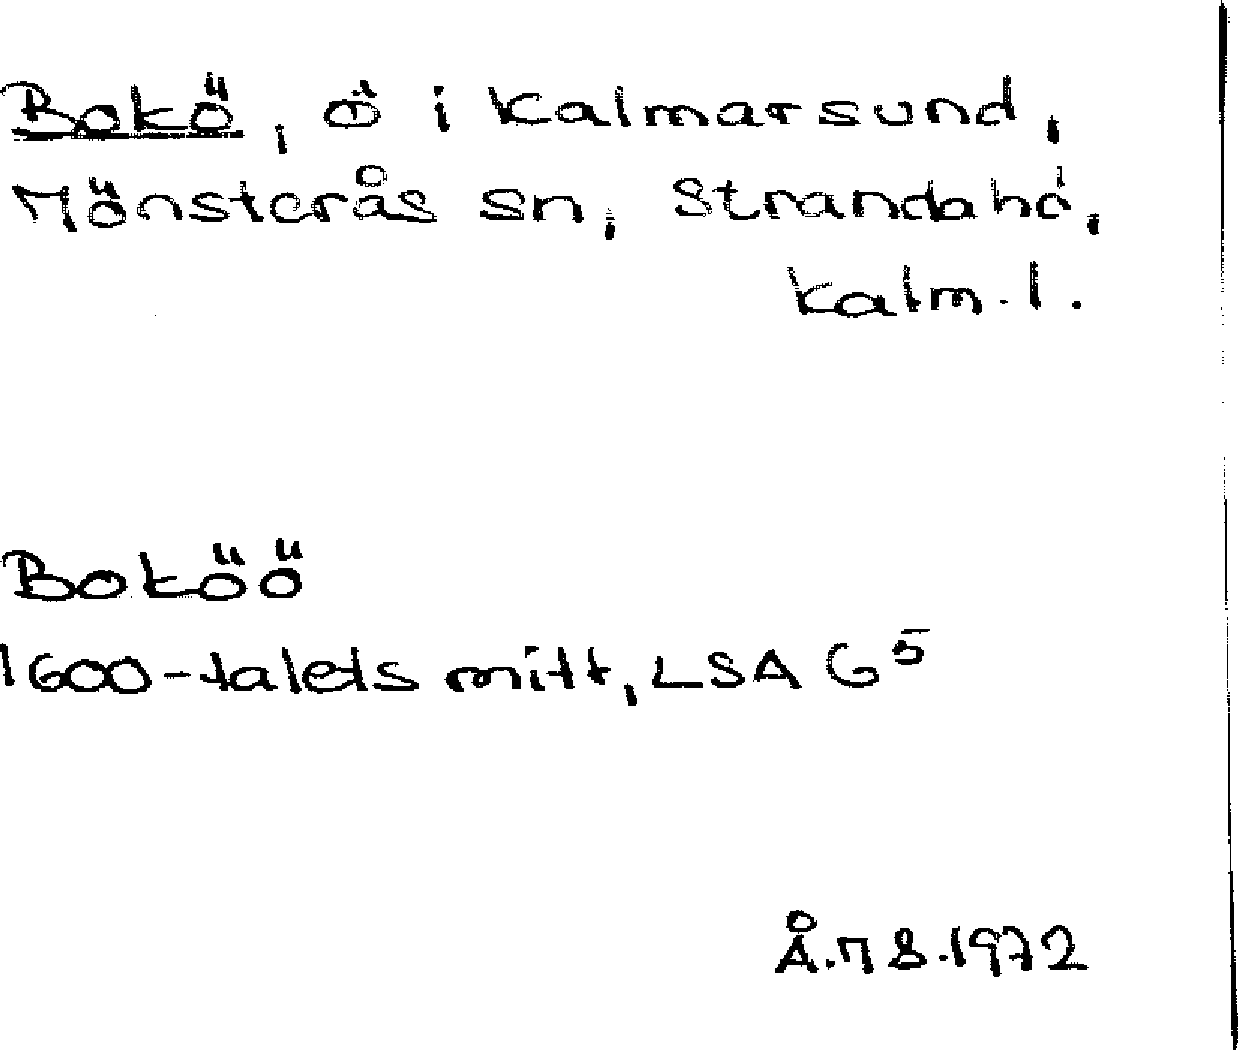 Bokö, ö i Kalmarsund,
Mönsterås sn, Stranda hd,
Kalm. l.
Boköö
1600-talets mitt, LSA G⁵
Å.M 8.1972